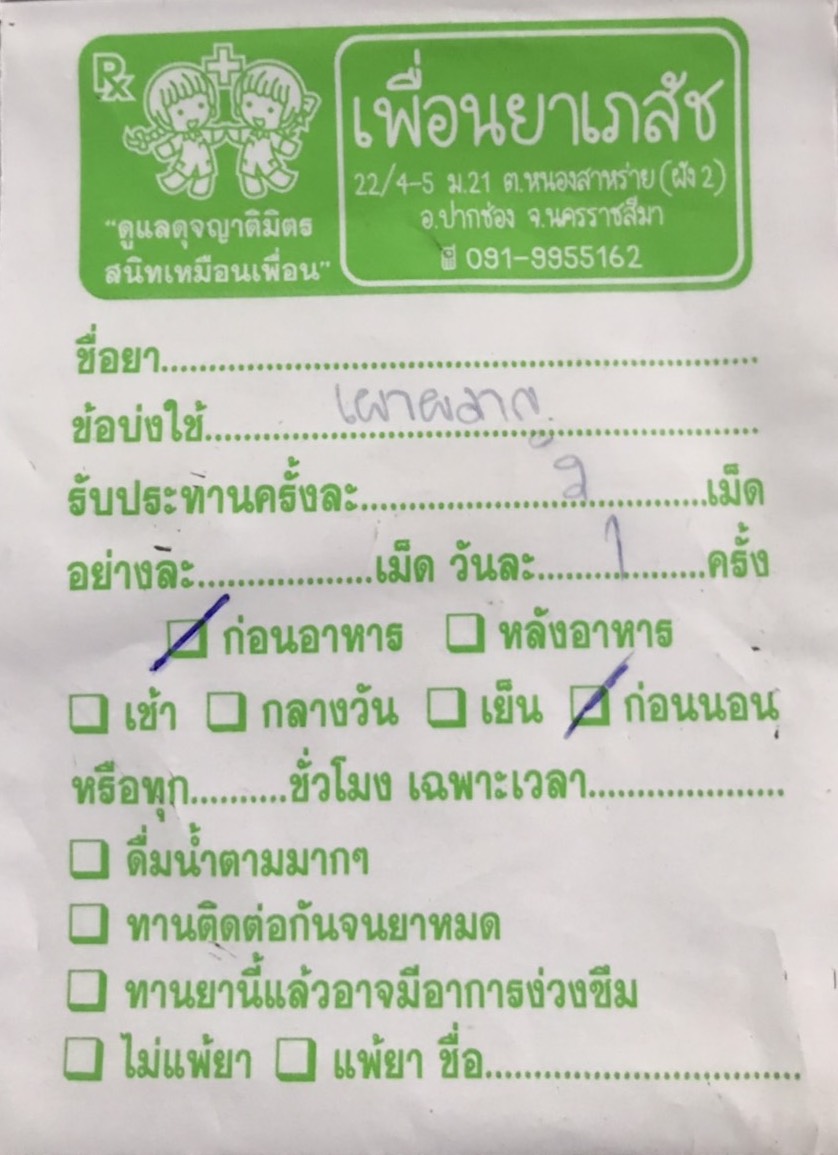 Rx
"ดูแลดุจญาติมิตร
สนิทเหมือนเพื่อน"
เพื่อนยาเภสัช
22/4-5 ม.21 ต.หนองสาหร่าย (ผัง 2)
อ.ปากช่อง จ.นครราชสีมา
091-9955162
ชื่อยา
ข้อบ่งใช้ เผาผลาญ
รับประทานครั้งละ 2 เม็ด
อย่างละ เม็ด วันละ 1 ครั้ง
ก่อนอาหาร หลังอาหาร
เช้า กลางวัน เย็น ก่อนนอน
หรือทุก ชั่วโมง เฉพาะเวลา
ดื่มน้ำตามมากๆ
ทานติดต่อกันจนยาหมด
ทานยานี้แล้วอาจมีอาการง่วงซึม
ไม่แพ้ยา แพ้ยา ชื่อ